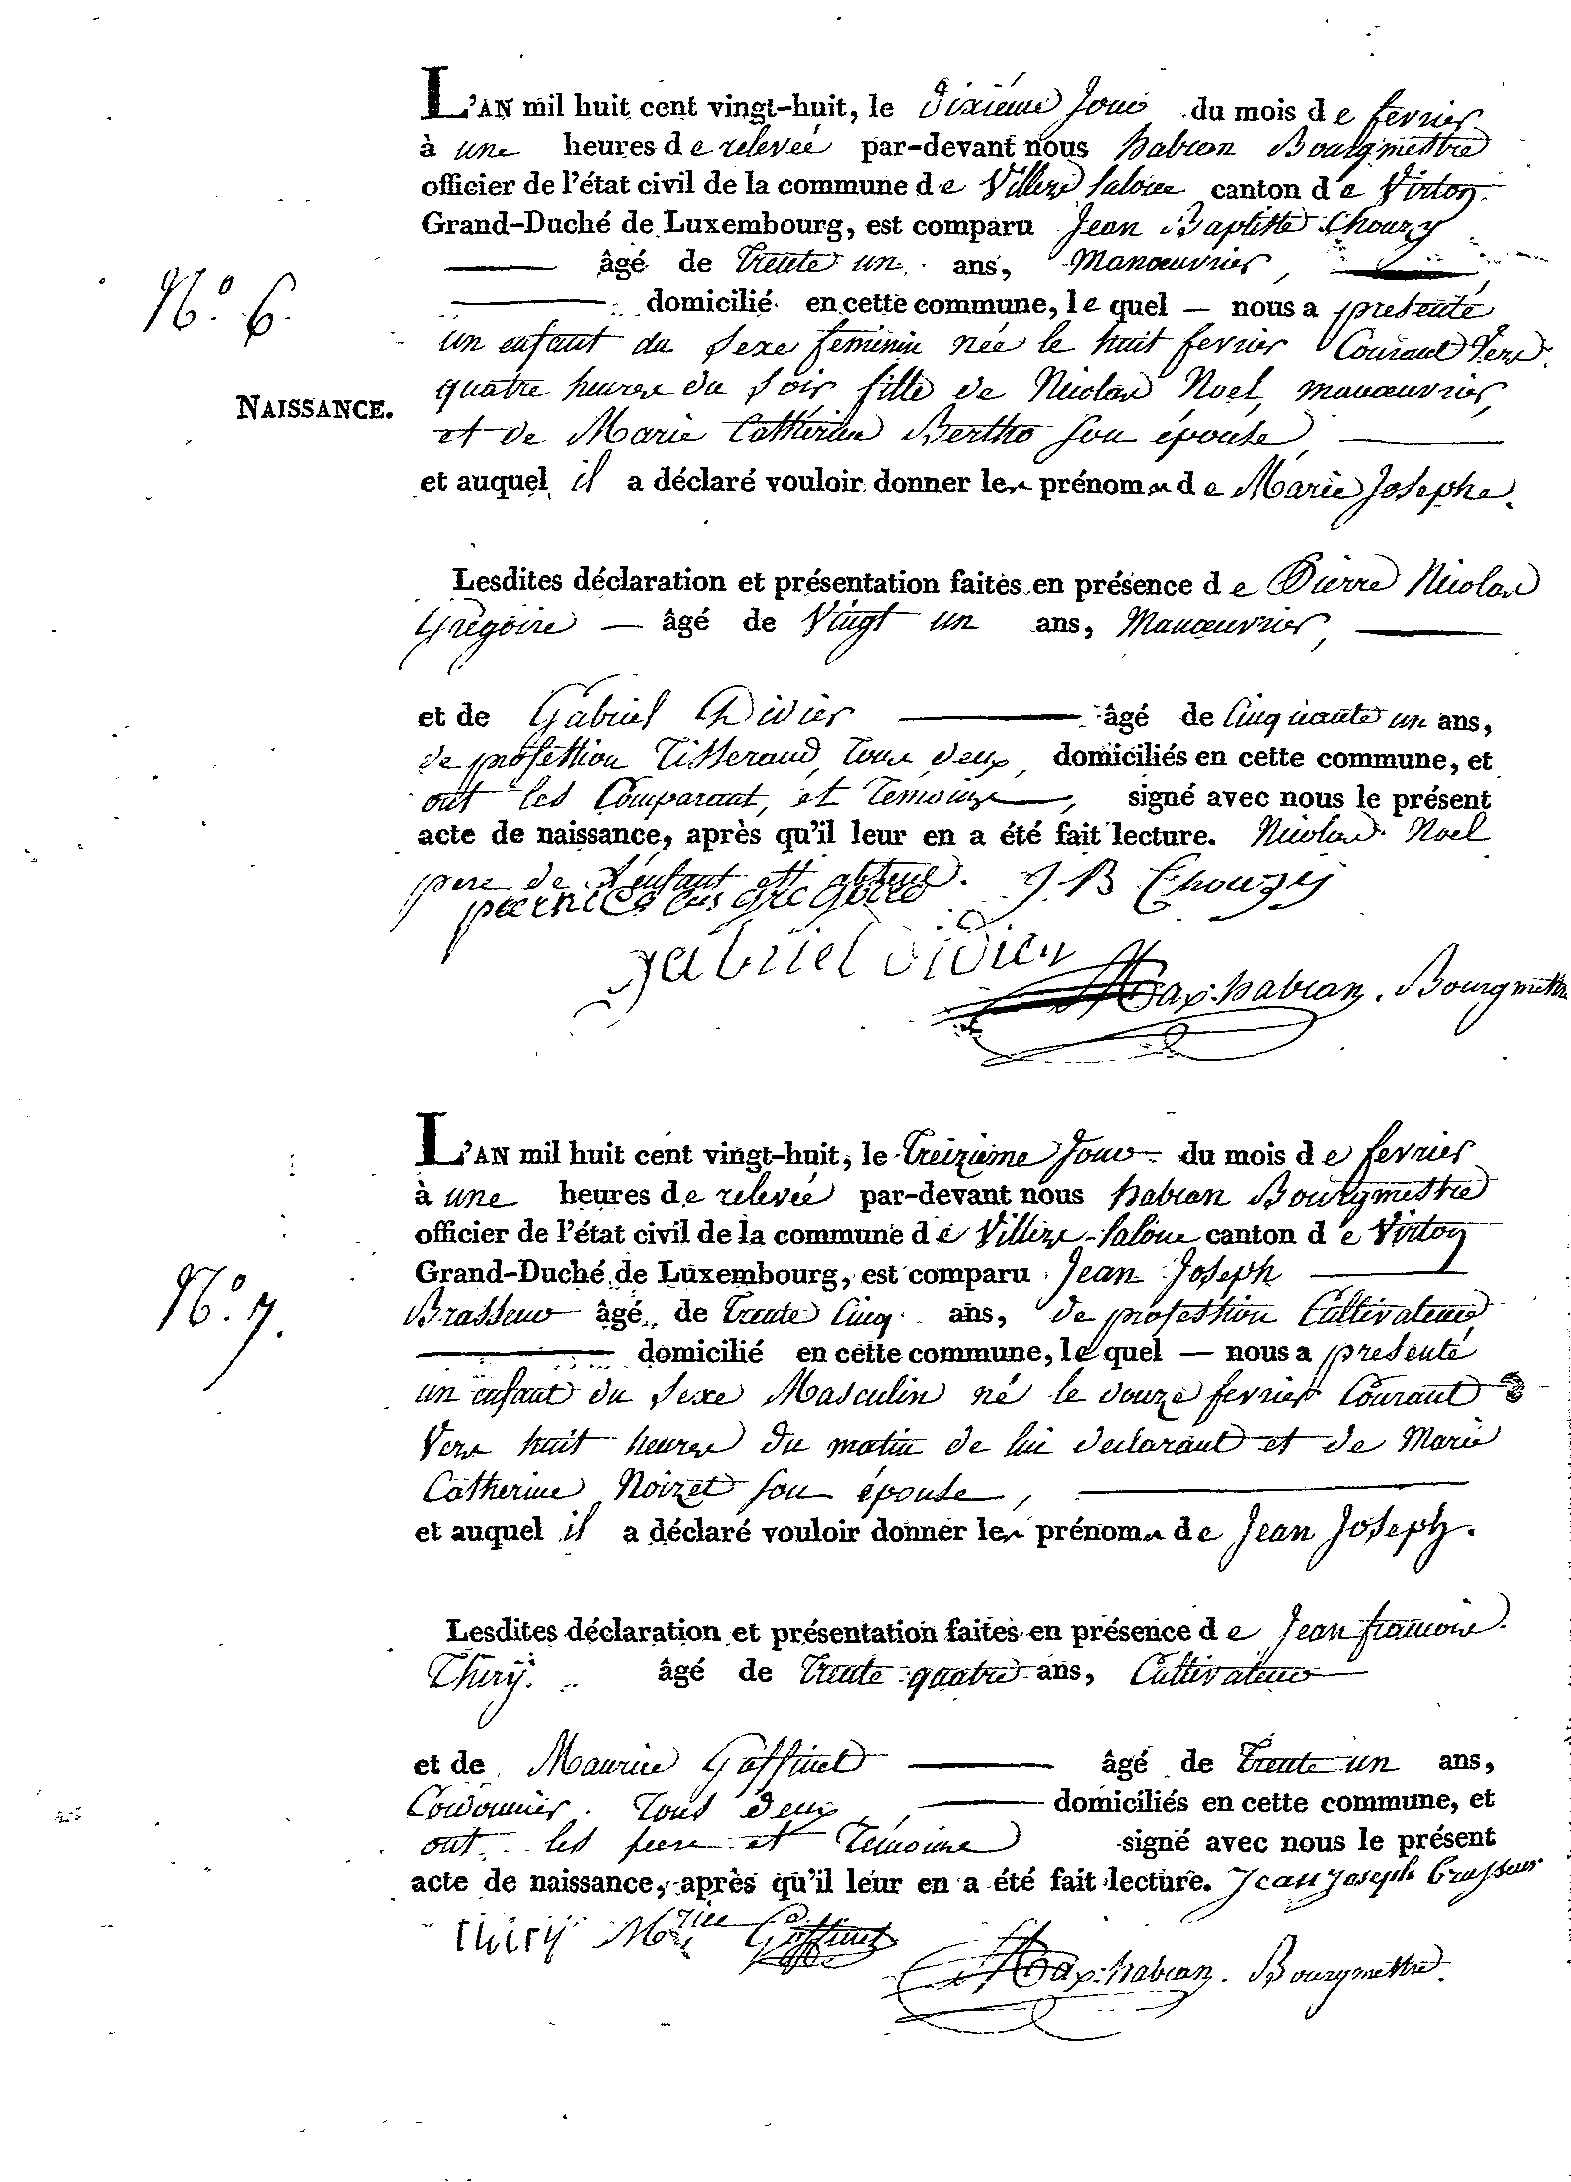 L'AN mil huit cent vingt-huit, le Dixième Jour du mois de fevrier
à une heures de relevée par-devant nous habran Bourgmestre
officier de l'état civil de la commune de Villers saloue canton de Virton
Grand-Duché de Luxembourg, est comparu Jean Baptiste Chouzy
âgé de trente un ans, Manœuvrier,
N.° 6.
domicilié en cette commune, lequel — nous a presenté
un enfant du sexe feminin née le huit fevrier Courant vers
quatre heures du soir fille de Nicolas Noel, manœuvrier,
NAISSANCE.
et de Marie Cathérine Bertho son épouse,
et auquel il a déclaré vouloir donner les prénoms de Marie Josephe.
Lesdites déclaration et présentation faites en présence de Pierre Nicolas
Gregoire — âgé de Vingt un ans, Manœuvrier,
et de Gabriel Didier âgé de Cinquante un ans,
de profession Tisserand, tous deux, domiciliés en cette commune, et
ont les Comparant, et Temoins, signé avec nous le présent
acte de naissance, après qu'il leur en a été fait lecture. Nicolas Noel
pere de l'enfant est absent. J. B Chouzy
pierre nicolas gregoire
gabriel didier
Max. habran. Bourgmestre
L'AN mil huit cent vingt-huit, le Treizième Jour du mois de fevrier
à une heures de relevée par-devant nous habran Bourgmestre
officier de l'état civil de la commune de Villers-saloue canton de Virton
Grand-Duché de Luxembourg, est comparu Jean Joseph
N.° 7.
Brasseur âgé de trente Cinq ans, de profession Cultivateur
domicilié en cette commune, lequel — nous a presenté
un enfant du sexe Masculin né le douze fevrier Courant
Vers huit heures du matin de lui declarant et de Marie
Catherine Noizet son épouse,
et auquel il a déclaré vouloir donner les prénoms de Jean Joseph.
Lesdites déclaration et présentation faites en présence de Jean francois
Thiry. âgé de trente quatre ans, Cultivateur
et de Maurice Goffinet âgé de trente un ans,
Cordonnier. Tous deux, domiciliés en cette commune, et
ont les pere et Témoins signé avec nous le présent
acte de naissance, après qu'il leur en a été fait lecture. Jean joseph brasseur
thiry Mrice Goffinet
Max. habran. Bourgmestre.